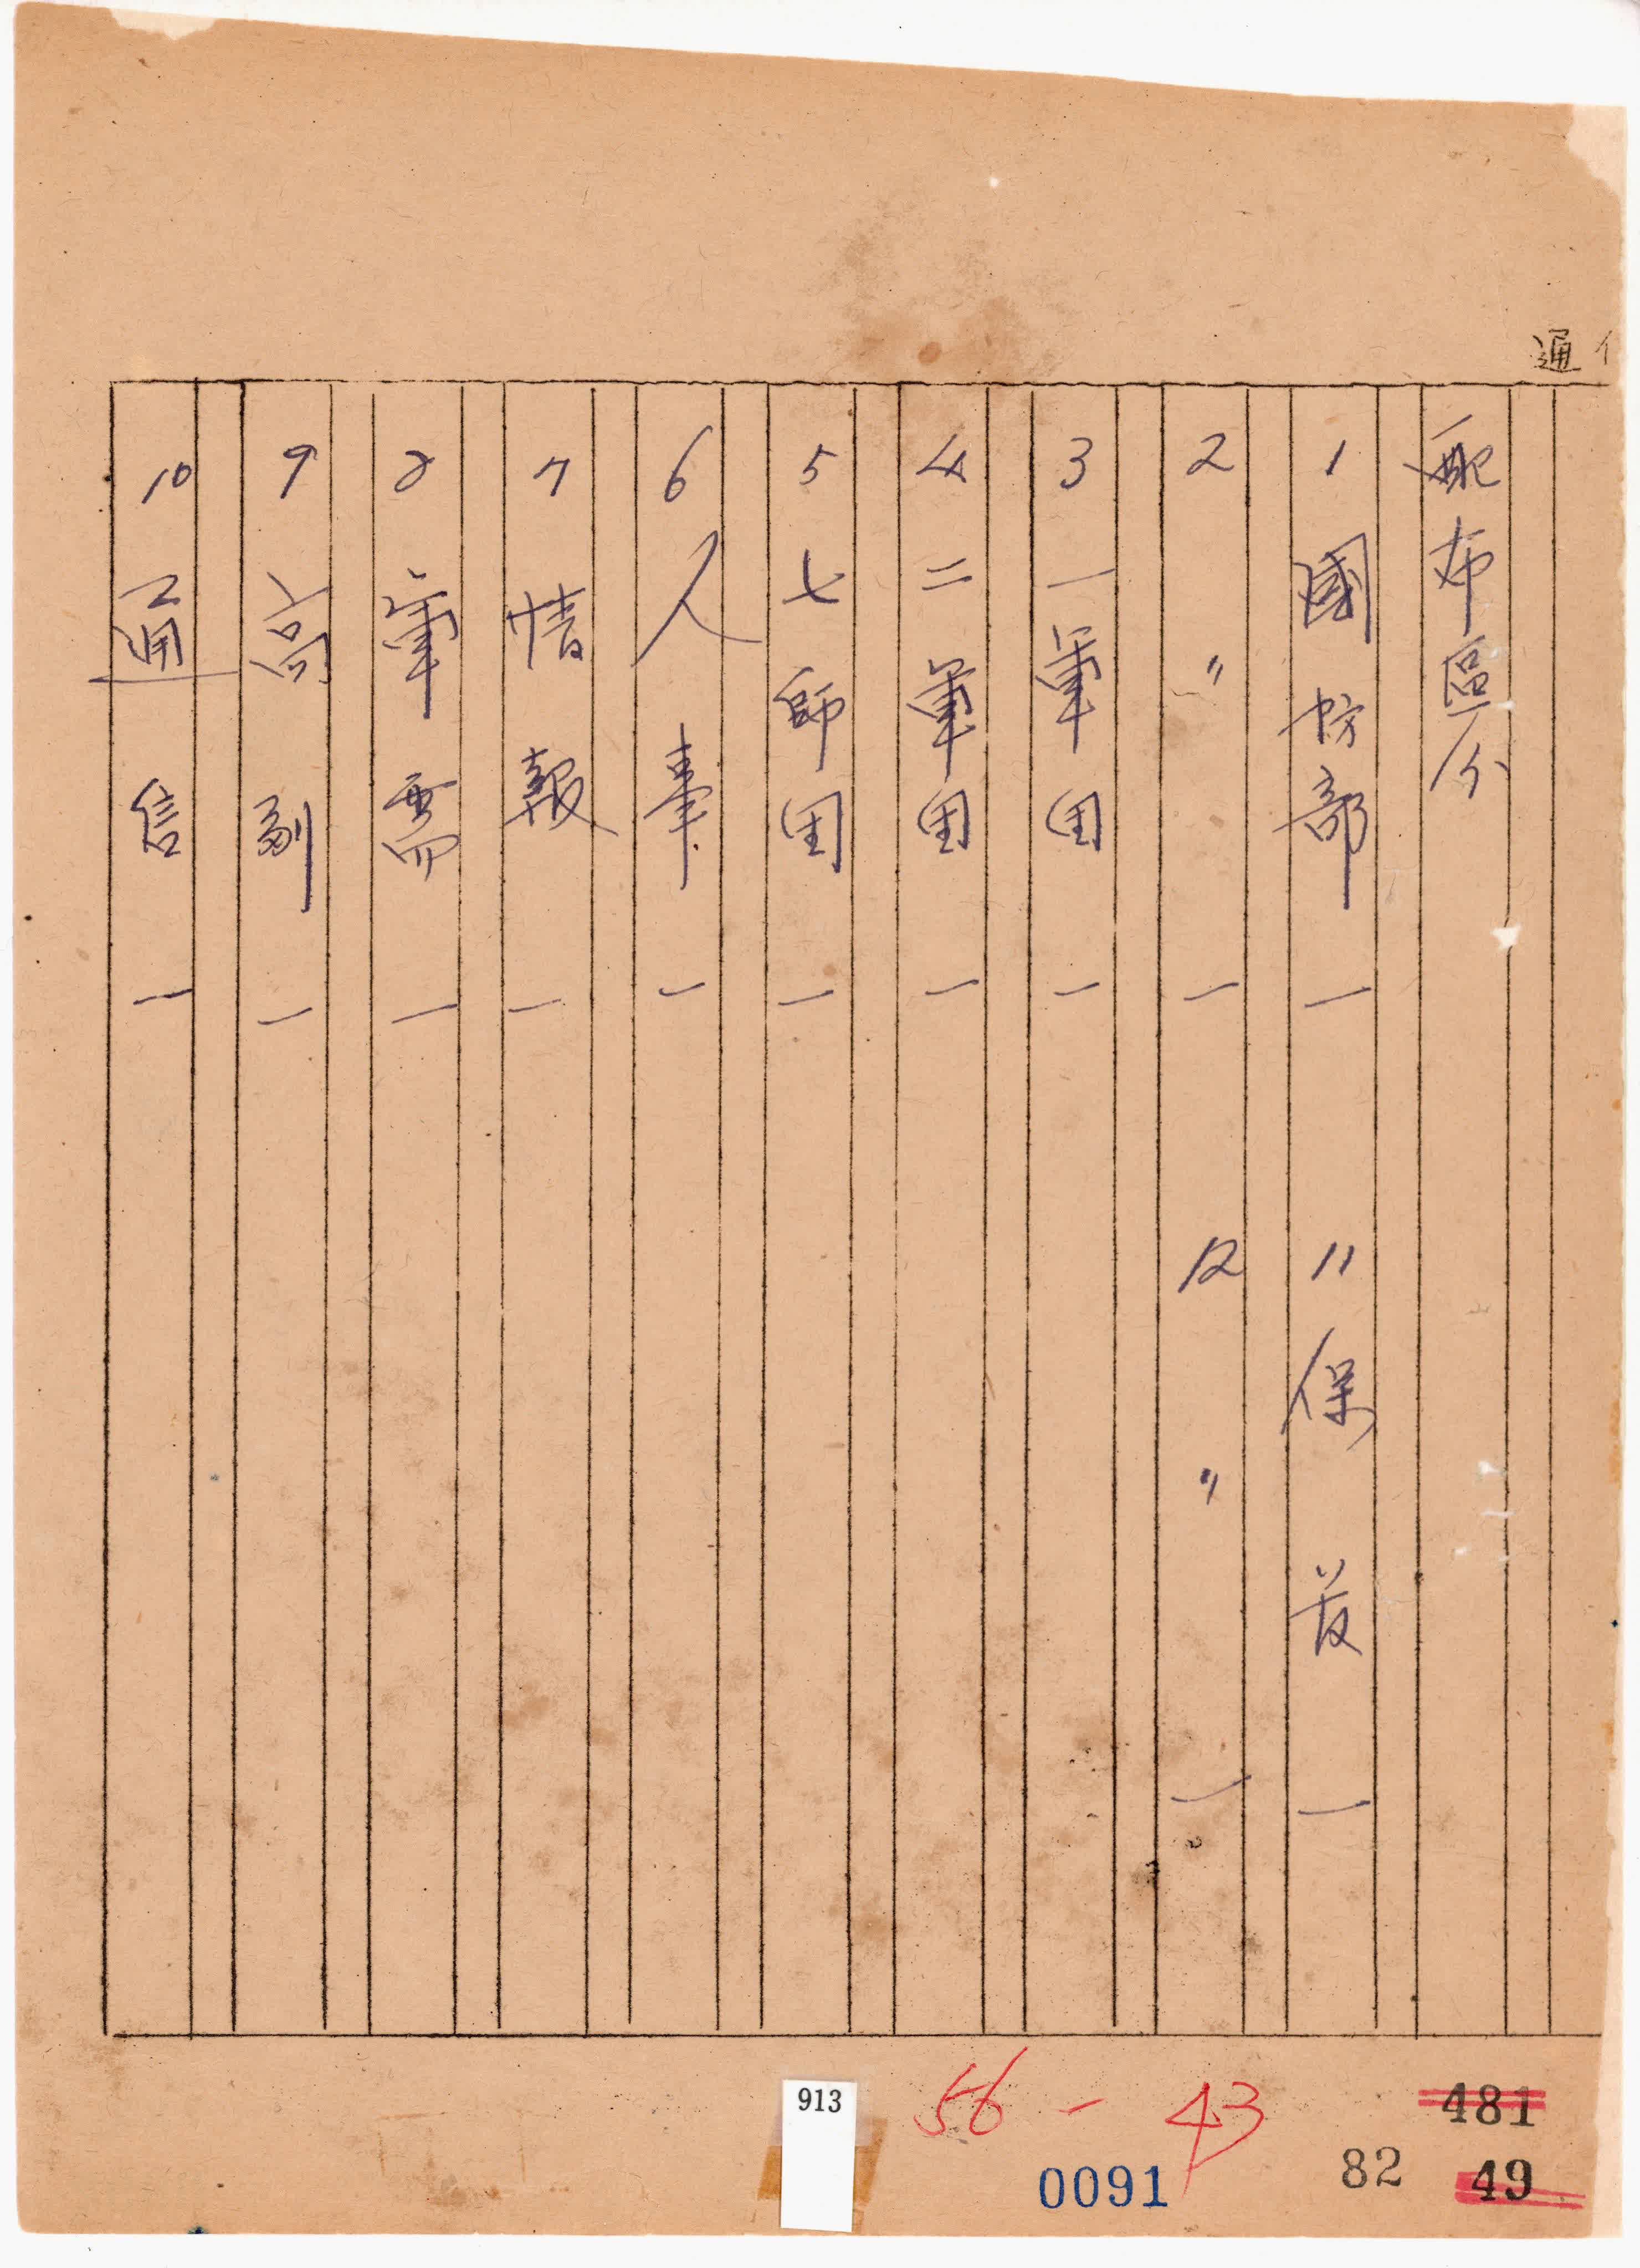 通
配布區分
1 國防部 一 11 保 一
2 〃 一 12 〃 一
3 一軍団 一
4 二軍団 一
5 七師団 一
6 人事 一
7 情報 一
8 軍需 一
9 高副 一
10 通信 一
913
56-43
481
0091
82
49